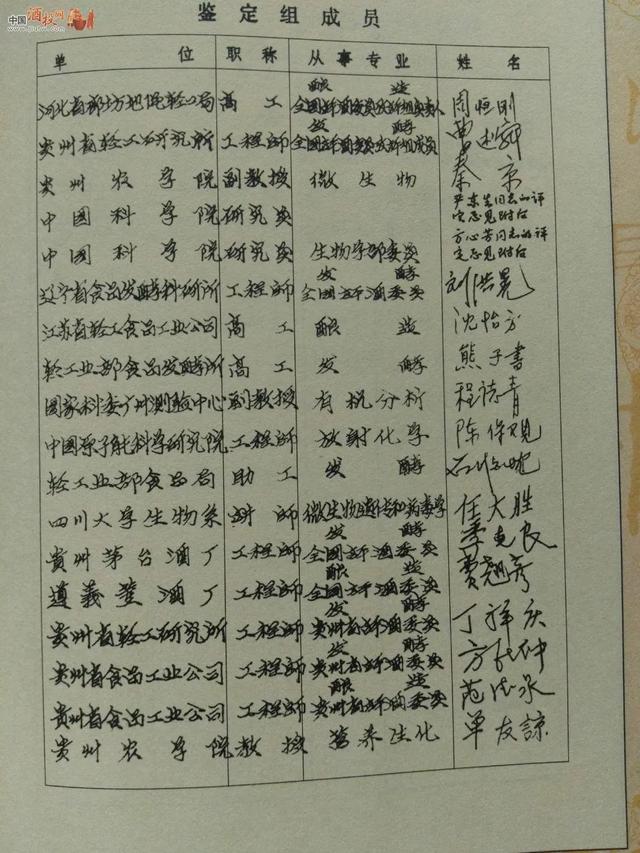 中国酒投网
www.jiutw.com
鉴定组成员
单位 职称 从事专业 姓名
酿造
河北省廊坊地区轻工局 高工 全国评酒委员 周恒刚
发酵
贵州省轻工研究所 工程师 全国评酒委员 曹述舜
贵州农学院 副教授 微生物 秦京
中国科学院 研究员 严东生同志的评定意见附后
中国科学院 研究员 生物学部委员 方心芳同志的评定意见附后
发酵
辽宁省食品发酵科研所 工程师 全国评酒委员 刘洪晃
江苏省轻工食品工业公司 高工 酿造 沈怡方
轻工业部食品发酵所 高工 发酵 熊子書
国家科委广州测验中心 副教授 有机分析 程志青
中国原子能科学研究院 工程师 放射化学 陈保观
轻工业部食品局 助工 发酵
四川大学生物系 讲师 微生物遗传和病毒学 任大胜
发酵
贵州茅台酒厂 工程师 全国评酒委员 季克良
酿造
遵義董酒厂 工程师 全国评酒委员 贾翘彦
发酵
贵州省轻工研究所 工程师 贵州省评酒委员 丁祥庆
发酵
贵州省食品工业公司 工程师 贵州省评酒委员 方长仲
酿造
贵州省食品工业公司 工程师 贵州省评酒委员 范法永
贵州农学院 教授 营养生化 单友諒